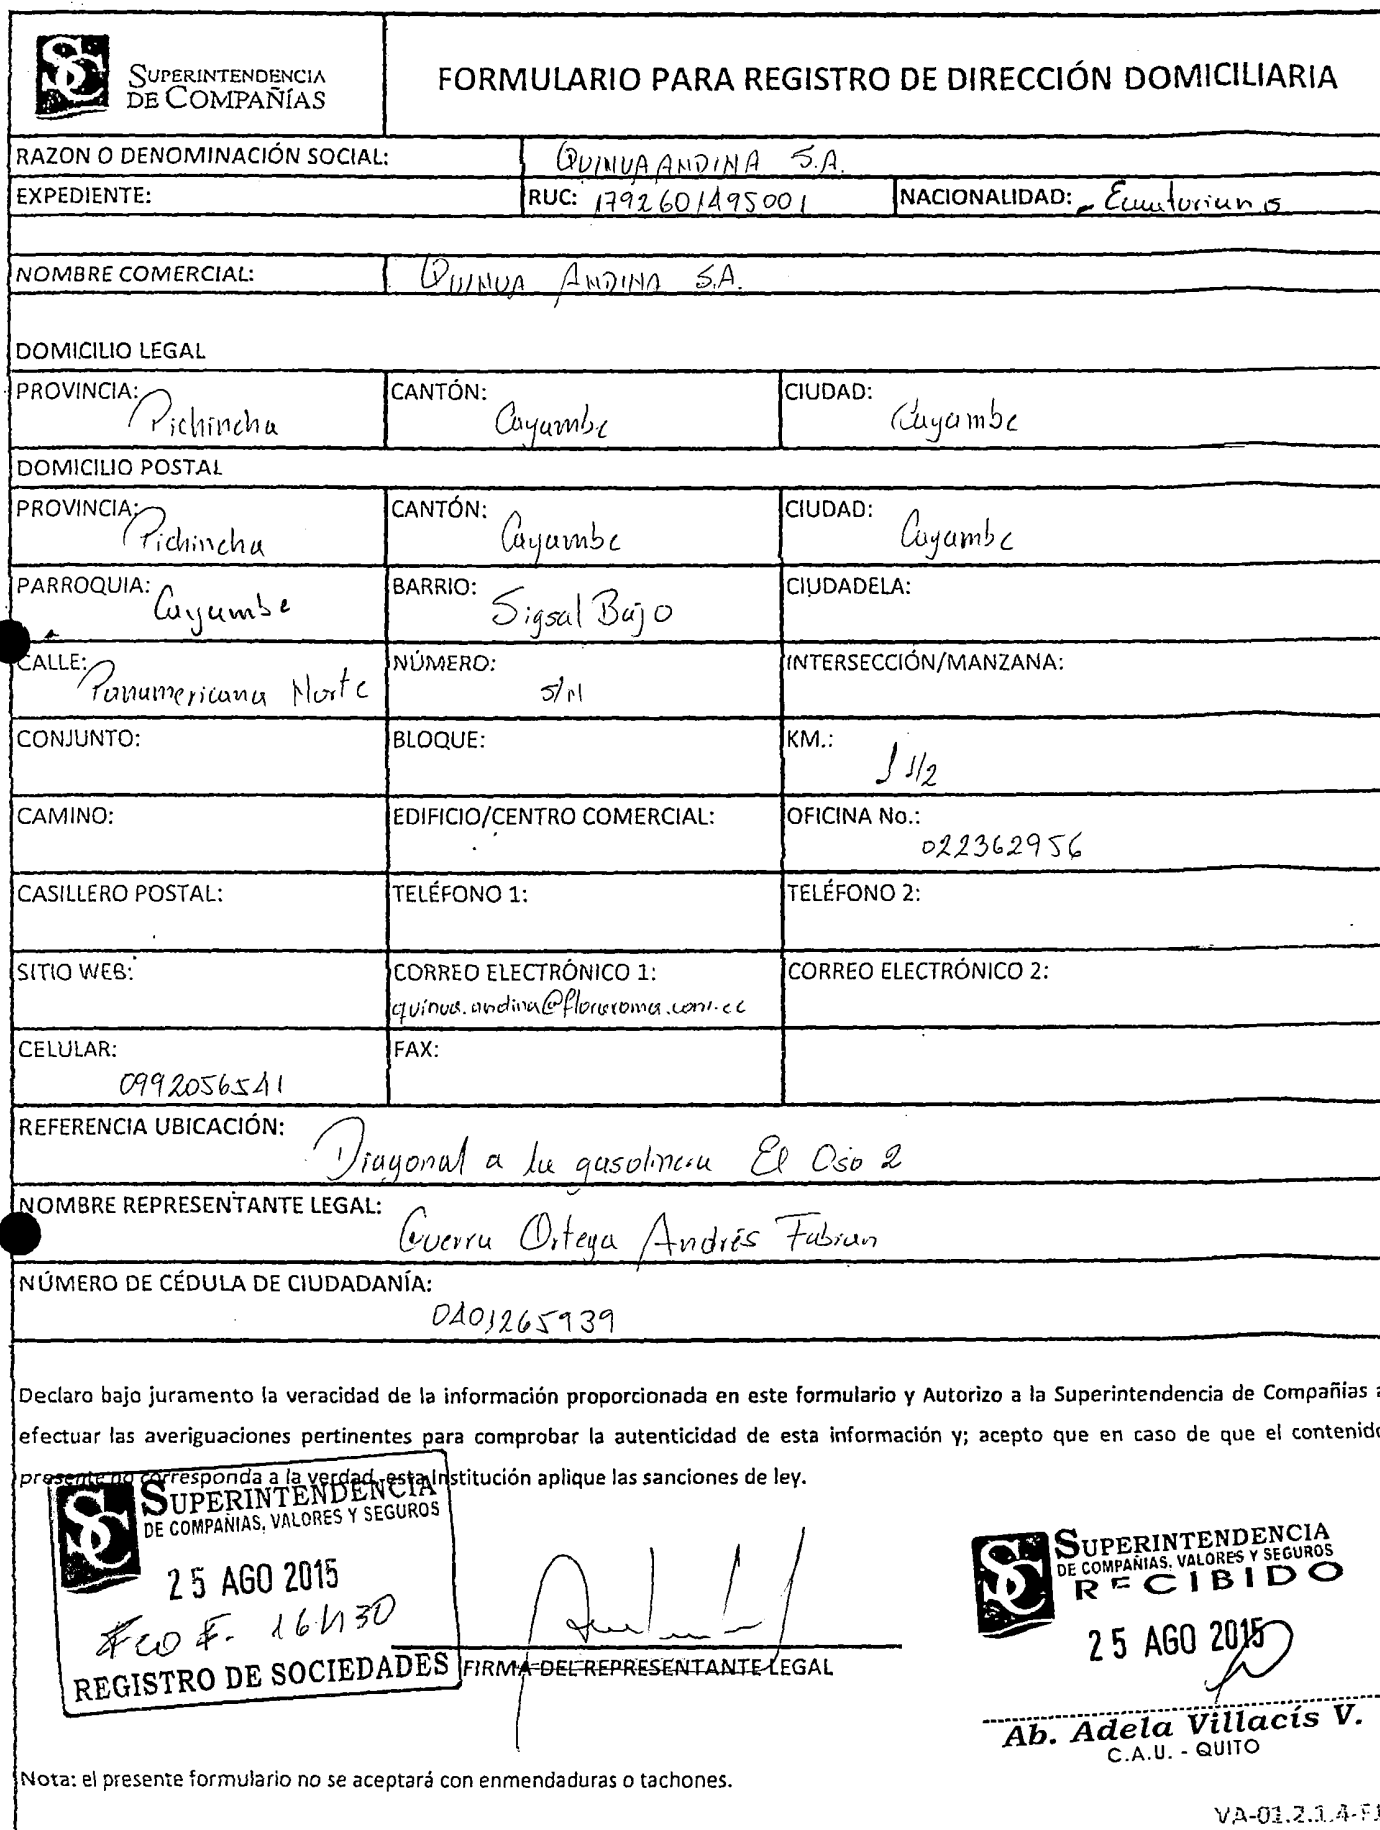 SUPERINTENDENCIA
DE COMPAÑÍAS
FORMULARIO PARA REGISTRO DE DIRECCIÓN DOMICILIARIA
RAZON O DENOMINACIÓN SOCIAL: QUINUA ANDINA S.A.
EXPEDIENTE: RUC: 1792601495001 NACIONALIDAD: Ecuatoriana
NOMBRE COMERCIAL: QUINUA ANDINA S.A.
DOMICILIO LEGAL
PROVINCIA: CANTÓN: CIUDAD:
Pichincha Cayambe Cayambe
DOMICILIO POSTAL
PROVINCIA: CANTÓN: CIUDAD:
Pichincha Cayambe Cayambe
PARROQUIA: Cayambe BARRIO: Sigsal Bajo CIUDADELA:
CALLE: NÚMERO: INTERSECCIÓN/MANZANA:
Panamericana Norte S/N
CONJUNTO: BLOQUE: KM.:
1 1/2
CAMINO: EDIFICIO/CENTRO COMERCIAL: OFICINA No.:
022362956
CASILLERO POSTAL: TELÉFONO 1: TELÉFONO 2:
SITIO WEB: CORREO ELECTRÓNICO 1: CORREO ELECTRÓNICO 2:
quinua.andina@floraroma.com.ec
CELULAR: FAX:
0992056541
REFERENCIA UBICACIÓN:
Diagonal a la gasolinera El Oso 2
NOMBRE REPRESENTANTE LEGAL:
Guerra Ortega Andrés Fabian
NÚMERO DE CÉDULA DE CIUDADANÍA:
0401265939
Declaro bajo juramento la veracidad de la información proporcionada en este formulario y Autorizo a la Superintendencia de Compañias a
efectuar las averiguaciones pertinentes para comprobar la autenticidad de esta información y; acepto que en caso de que el contenido
presente no corresponda a la verdad, esta Institución aplique las sanciones de ley.
SUPERINTENDENCIA
DE COMPAÑIAS, VALORES Y SEGUROS
25 AGO 2015
16H30
REGISTRO DE SOCIEDADES
FIRMA DEL REPRESENTANTE LEGAL
SUPERINTENDENCIA
DE COMPAÑIAS, VALORES Y SEGUROS
RECIBIDO
25 AGO 2015
Ab. Adela Villacís V.
C.A.U. - QUITO
Nota: el presente formulario no se aceptará con enmendaduras o tachones.
VA-01.2.1.4-F1